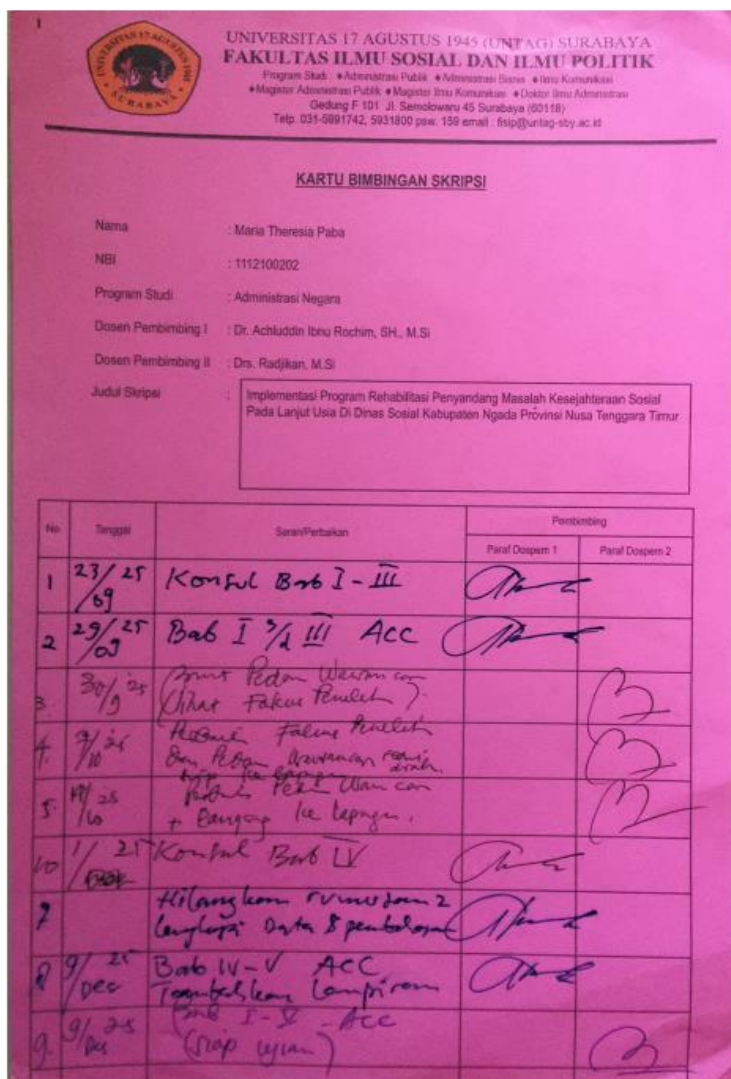 1
UNIVERSITAS 17 AGUSTUS 1945 (UNTAG) SURABAYA
FAKULTAS ILMU SOSIAL DAN ILMU POLITIK
Program Studi : ♦Administrasi Publik ♦Administrasi Bisnis ♦Ilmu Komunikasi
♦Magister Administrasi Publik ♦Magister Ilmu Komunikasi ♦Doktor Ilmu Administrasi
Gedung F 101 Jl. Semolowaru 45 Surabaya (60118)
Telp. 031-5991742, 5931800 psw. 159 email : fisip@untag-sby.ac.id
KARTU BIMBINGAN SKRIPSI
Nama : Maria Theresia Paba
NBI : 1112100202
Program Studi : Administrasi Negara
Dosen Pembimbing I : Dr. Achluddin Ibnu Rochim, SH., M.Si
Dosen Pembimbing II : Drs. Radjikan, M.Si
Judul Skripsi : Implementasi Program Rehabilitasi Penyandang Masalah Kesejahteraan Sosial
Pada Lanjut Usia Di Dinas Sosial Kabupaten Ngada Provinsi Nusa Tenggara Timur
No Tanggal Saran/Perbaikan Pembimbing
Paraf Dospem 1 Paraf Dospem 2
1 23/25 Konsul Bab I - III
/09
2 29/25 Bab I s/d III ACC
/09
3. 30/9 '25
(lihat Fokus Penelit).
4. Fokus Penelit
/10 '25 dan
5. /10 25
+ ke lapangan.
1/25 Konsul Bab IV
7 Hilangkan
lengkapi Data & pembahasan
8 9/25 Bab IV - V ACC
/Dec Tambahkan Lampiran
9. 9/25 Bab I - V - Acc
/Des (siap ujian)